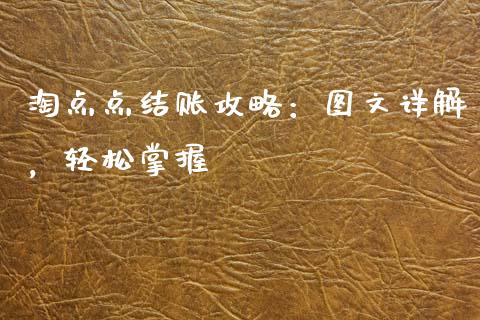 淘点点结账攻略：图文详解
，轻松掌握